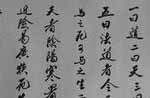 一曰道二曰天三曰
五曰法道者令
与之死可与之生
天者陰陽寒暑
近險易廣狹死